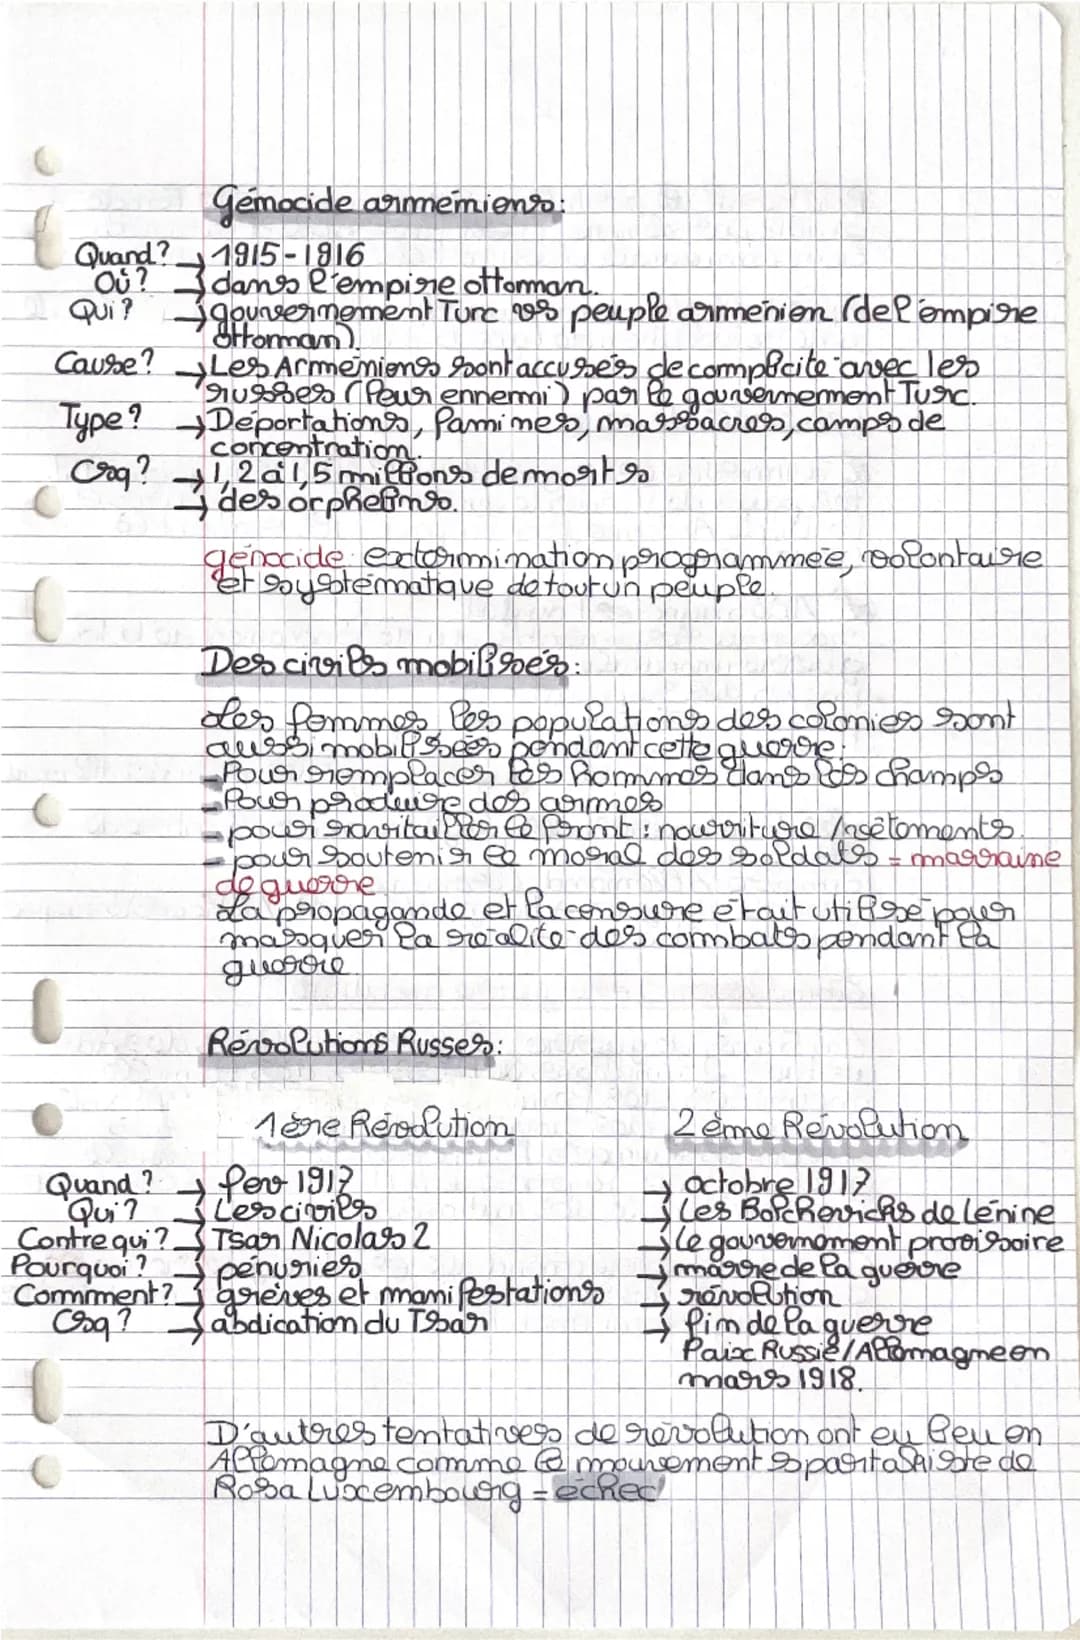 Génocide arméniens:
Quand? → 1915-1916
Où? → dans l'empire ottoman.
Qui? → gouvernement Turc vs peuple arménien (de l'empire
ottoman).
Cause? → Les Arméniens sont accusés de complicité avec les
russes (leur ennemi) par le gouvernement Turc.
Type? → Déportations, famines, massacres, camps de
concentration.
Csq? → 1,2 à 1,5 millions de morts
→ des orphelins.
génocide: extermination programmée, volontaire
et systématique de tout un peuple.
Des civils mobilisés:
Les femmes, les populations des colonies sont
aussi mobilisées pendant cette guerre:
- Pour remplacer les hommes dans les champs
- Pour produire des armes
- pour ravitailler le front: nourriture / vêtements.
- pour soutenir le moral des soldats = marraine
de guerre
La propagande et la censure était utilisé pour
masquer la réalité des combats pendant la
guerre.
Révolutions Russes:
1ère Révolution 2ème Révolution
Quand? → fev 1917 → octobre 1917
Qui? → Les civils → Les Bolcheviks de Lénine
Contre qui? → Tsar Nicolas 2 → Le gouvernement provisoire
Pourquoi? → pénuries → marre de la guerre
Comment? → grèves et manifestations → révolution
Csq? → abdication du Tsar → fin de la guerre
Paix Russie/Allemagne en
mars 1918.
D'autres tentatives de révolution ont eu lieu en
Allemagne comme le mouvement spartakiste de
Rosa Luxembourg = échec